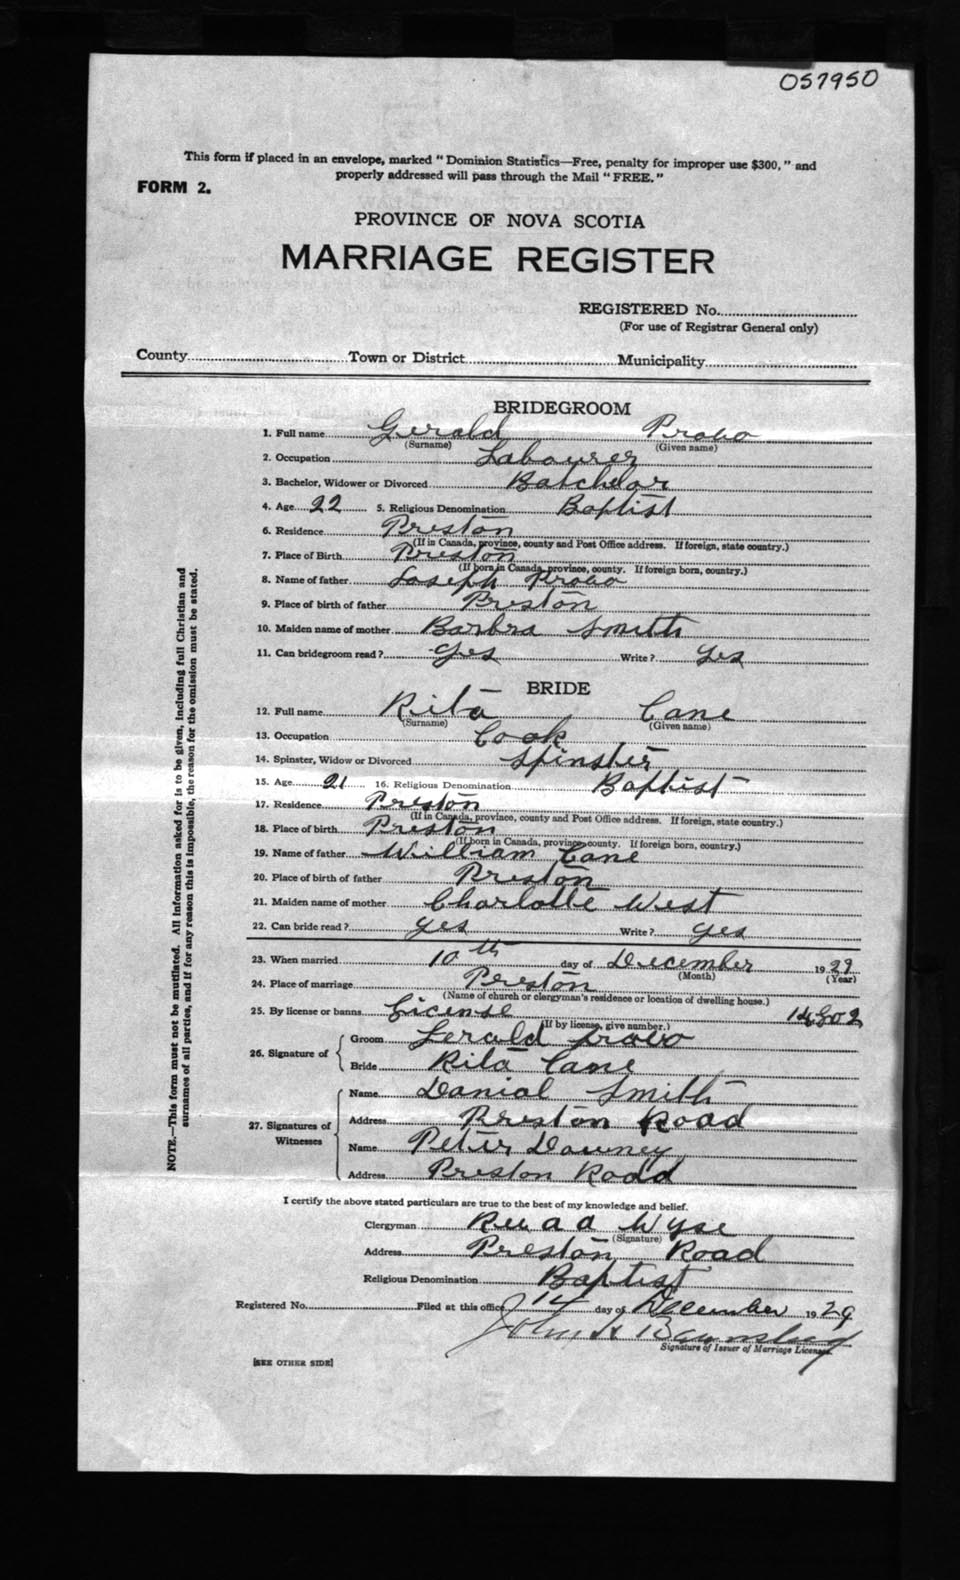 057950
This form if placed in an envelope, marked " Dominion Statistics—Free, penalty for improper use $300, " and
properly addressed will pass through the Mail " FREE."
FORM 2.
PROVINCE OF NOVA SCOTIA
MARRIAGE REGISTER
REGISTERED No.
(For use of Registrar General only)
County Town or District Municipality
BRIDEGROOM
1. Full name Gerald Provo
(Surname) (Given name)
2. Occupation Labourer
3. Bachelor, Widower or Divorced Batchelor
4. Age 22 5. Religious Denomination Baptist
6. Residence Preston
(If in Canada, province, county and Post Office address. If foreign, state country.)
7. Place of Birth Preston
(If born in Canada, province, county. If foreign born, country.)
8. Name of father Joseph Provo
9. Place of birth of father Preston
10. Maiden name of mother Barbra Smith
11. Can bridegroom read? yes Write? yes
BRIDE
12. Full name Rita Cane
(Surname) (Given name)
13. Occupation Cook
14. Spinster, Widow or Divorced Spinster
15. Age 21 16. Religious Denomination Baptist
17. Residence Preston
(If in Canada, province, county and Post Office address. If foreign, state country.)
18. Place of birth Preston
(If born in Canada, province, county. If foreign born, country.)
19. Name of father William Cane
20. Place of birth of father Preston
21. Maiden name of mother Charlotte West
22. Can bride read? yes Write? yes
23. When married 10th day of December 1929
(Month) (Year)
24. Place of marriage Preston
(Name of church or clergyman's residence or location of dwelling house.)
25. By license or banns License
(If by license, give number.)
26. Signature of Groom Gerald Provo
Bride Rita Cane
27. Signatures of Witnesses Name Danial Smith
Address Preston Road
Name Peter Downey
Address Preston Road
I certify the above stated particulars are true to the best of my knowledge and belief.
Clergyman Wyse
(Signature)
Address Preston Road
Religious Denomination Baptist
Registered No. Filed at this office 14 day of December 1929
John
Signature of Issuer of Marriage Licenses
[SEE OTHER SIDE]
NOTE.—This form must not be mutilated. All information asked for is to be given, including full Christian and
surnames of all parties, and if for any reason this is impossible, the reason for the omission must be stated.